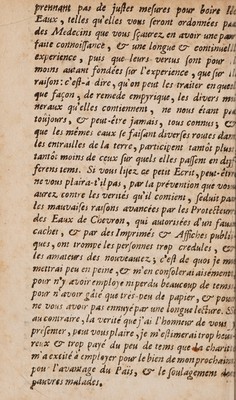 prennant pas de justes mesures pour boire les
Eaux, telles qu'elles vous seront ordonnées par
des Medecins que vous sçaurez en avoir une par
faite connoissance, & une longue & continuelle
experience, puis que leurs vertus sont pour
moins autant fondées sur l'experience, que sur la
raison: c'est-à dire, qu'on peut les traiter en quel
que façon, de remede empyrique, les divers mi
neraux qu'elles contiennent, ne nous étant pas
toûjours, & peut-être jamais, tous connus; &
que les mêmes eaux se faisant diverses routes dans
les entrailles de la terre, participent tantôt plus
tantôt moins de ceux sur quels elles passent en dif
ferens tems. Si vous lisez ce petit Ecrit, peut-être
ne vous plaira-t'il pas, par la prévention que vous
aurez contre les veritez qu'il contient, seduit par
les mauvaises raisons avancées par les Protecteurs
des Eaux de autorisées d'un faux
cachet, & par des Imprimés & Affiches publi
ques, ont trompé les personnes trop credules, &
les amateurs des nouveautez; c'est de quoi je me
mettrai peu en peine, & m'en consolerai aisément
pour n'y avoir employé ni perdu beaucoup de tems
pour n'avoir gâté que tres-peu de papier, & pour
ne vous avoir pas ennuyé par une longue lecture. Si
au contraire, la verité que j'ai l'honneur de vous
présenter, peut vous plaire, je m'estimerai trop heu
reux & trop payé du peu de tems que la charité
m'a excité à employer pour le bien de mon prochain
pour l'avantage du Païs, & le soulagement des
pauvres malades.